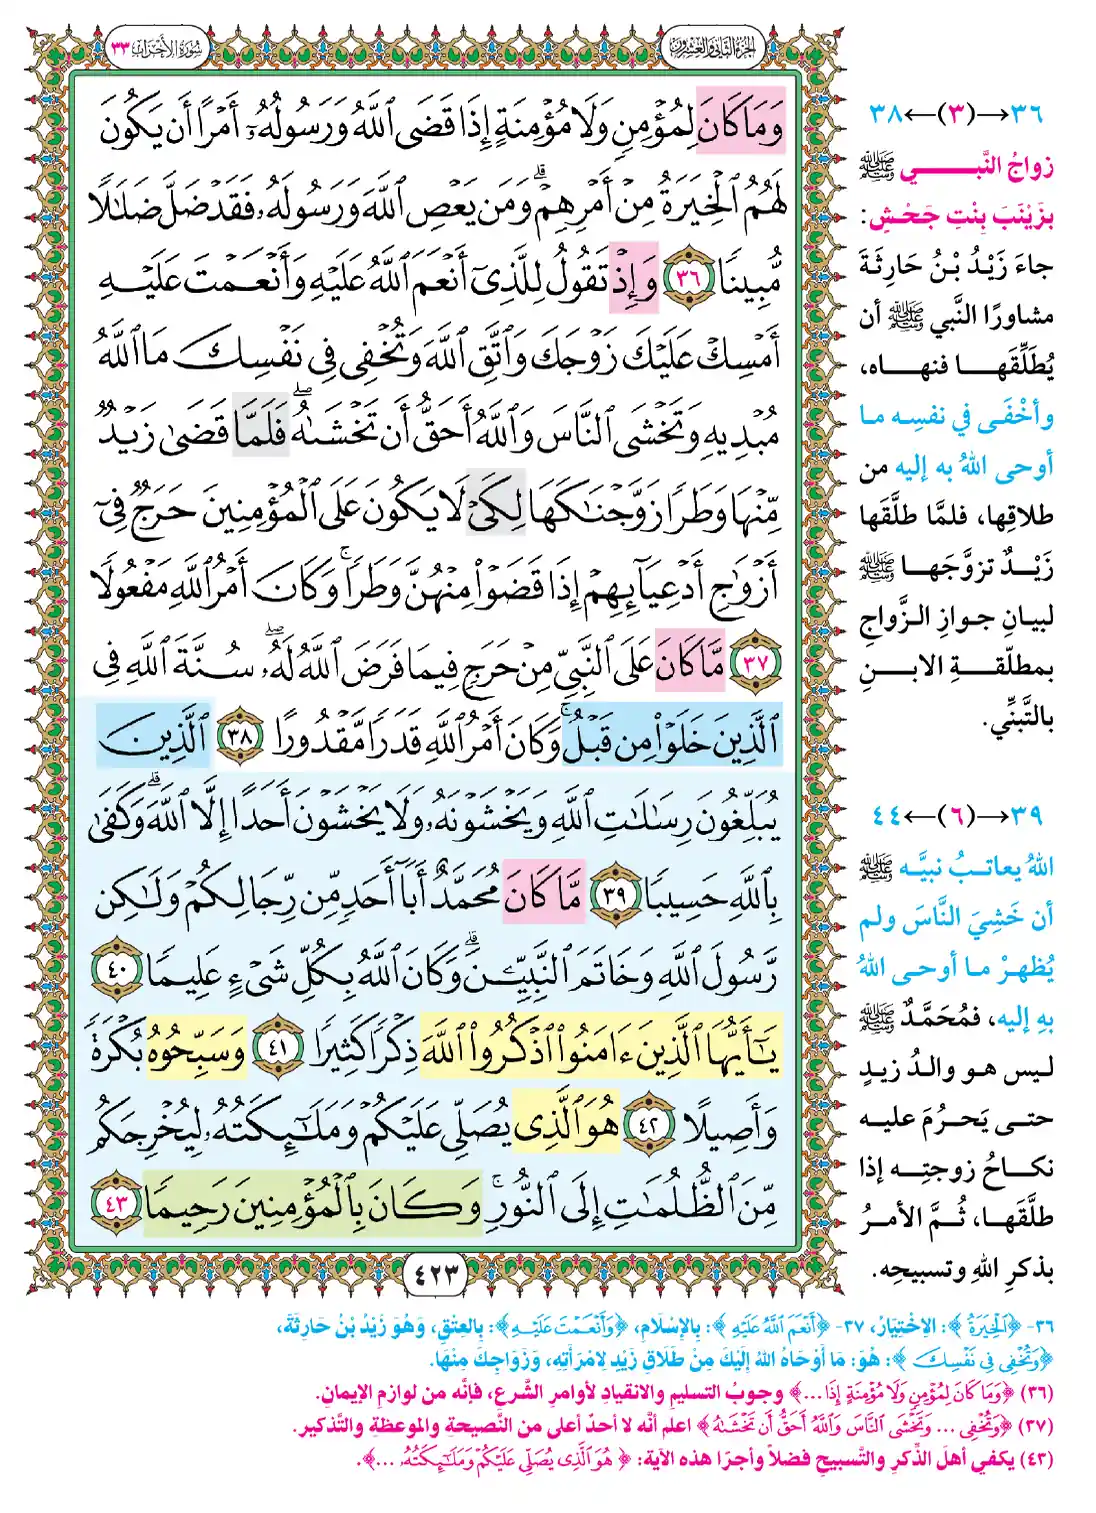 الجزء الثاني والعشرون
سورة الأحزاب ٣٣
وَمَا كَانَ لِمُؤْمِنٍ وَلَا مُؤْمِنَةٍ إِذَا قَضَى ٱللَّهُ وَرَسُولُهُۥٓ أَمْرًا أَن يَكُونَ
لَهُمُ ٱلْخِيَرَةُ مِنْ أَمْرِهِمْ ۗ وَمَن يَعْصِ ٱللَّهَ وَرَسُولَهُۥ فَقَدْ ضَلَّ ضَلَـٰلًا
مُّبِينًا ٣٦ وَإِذْ تَقُولُ لِلَّذِىٓ أَنْعَمَ ٱللَّهُ عَلَيْهِ وَأَنْعَمْتَ عَلَيْهِ
أَمْسِكْ عَلَيْكَ زَوْجَكَ وَٱتَّقِ ٱللَّهَ وَتُخْفِى فِى نَفْسِكَ مَا ٱللَّهُ
مُبْدِيهِ وَتَخْشَى ٱلنَّاسَ وَٱللَّهُ أَحَقُّ أَن تَخْشَىٰهُ ۖ فَلَمَّا قَضَىٰ زَيْدٌ
مِّنْهَا وَطَرًا زَوَّجْنَـٰكَهَا لِكَىْ لَا يَكُونَ عَلَى ٱلْمُؤْمِنِينَ حَرَجٌ فِىٓ
أَزْوَٰجِ أَدْعِيَآئِهِمْ إِذَا قَضَوْا۟ مِنْهُنَّ وَطَرًا ۚ وَكَانَ أَمْرُ ٱللَّهِ مَفْعُولًا
٣٧ مَّا كَانَ عَلَى ٱلنَّبِىِّ مِنْ حَرَجٍ فِيمَا فَرَضَ ٱللَّهُ لَهُۥ ۖ سُنَّةَ ٱللَّهِ فِى
ٱلَّذِينَ خَلَوْا۟ مِن قَبْلُ ۚ وَكَانَ أَمْرُ ٱللَّهِ قَدَرًا مَّقْدُورًا ٣٨ ٱلَّذِينَ
يُبَلِّغُونَ رِسَـٰلَـٰتِ ٱللَّهِ وَيَخْشَوْنَهُۥ وَلَا يَخْشَوْنَ أَحَدًا إِلَّا ٱللَّهَ ۗ وَكَفَىٰ
بِٱللَّهِ حَسِيبًا ٣٩ مَّا كَانَ مُحَمَّدٌ أَبَآ أَحَدٍ مِّن رِّجَالِكُمْ وَلَـٰكِن
رَّسُولَ ٱللَّهِ وَخَاتَمَ ٱلنَّبِيِّـۧنَ ۗ وَكَانَ ٱللَّهُ بِكُلِّ شَىْءٍ عَلِيمًا ٤٠
يَـٰٓأَيُّهَا ٱلَّذِينَ ءَامَنُوا۟ ٱذْكُرُوا۟ ٱللَّهَ ذِكْرًا كَثِيرًا ٤١ وَسَبِّحُوهُ بُكْرَةً
وَأَصِيلًا ٤٢ هُوَ ٱلَّذِى يُصَلِّى عَلَيْكُمْ وَمَلَـٰٓئِكَتُهُۥ لِيُخْرِجَكُم
مِّنَ ٱلظُّلُمَـٰتِ إِلَى ٱلنُّورِ ۚ وَكَانَ بِٱلْمُؤْمِنِينَ رَحِيمًا ٤٣
٤٢٣
٣٦→(٣)←٣٨
زواجُ النَّبي ﷺ
بزَيْنَبَ بِنْتِ جَحْشٍ:
جاءَ زَيْدُ بْنُ حَارِثَةَ
مشاورًا النَّبي ﷺ أن
يُطَلِّقَها فنهاه،
وأخْفَى في نفسِه ما
أوحى اللهُ به إليه من
طلاقِها، فلمَّا طلَّقَها
زَيْدٌ تزوَّجَها ﷺ
لبيان جوازِ الزَّواجِ
بمطلّقةِ الابنِ
بالتَّبنِّي.
٣٩→(٦)←٤٤
اللهُ يعاتبُ نبيَّه ﷺ
أن خَشِيَ النَّاسَ ولم
يُظهرْ ما أوحى اللهُ
بهِ إليه، فمُحَمَّدٌ ﷺ
ليس هو والدُ زيدٍ
حتى يَحرُمَ عليه
نكاحُ زوجتِه إذا
طلَّقَها، ثُمَّ الأمرُ
بذكرِ اللهِ وتسبيحِه.
٣٦- ﴿ٱلْخِيَرَةُ﴾: الِاخْتِيَارُ، ٣٧- ﴿أَنْعَمَ ٱللَّهُ عَلَيْهِ﴾: بِالإِسْلَامِ، ﴿وَأَنْعَمْتَ عَلَيْهِ﴾: بِالعِتْقِ، وَهُوَ زَيْدُ بْنُ حَارِثَةَ،
﴿وَتُخْفِى فِى نَفْسِكَ﴾: هُوَ: مَا أَوْحَاهُ اللهُ إِلَيْكَ مِنْ طَلَاقِ زَيْدٍ لامْرَأَتِهِ، وَزَوَاجِكَ مِنْهَا.
(٣٦) ﴿وَمَا كَانَ لِمُؤْمِنٍ وَلَا مُؤْمِنَةٍ إِذَا ...﴾ وجوبُ التسليمِ والانقيادِ لأوامرِ الشَّرعِ، فإنَّه من لوازمِ الإيمانِ.
(٣٧) ﴿وَتُخْفِى ... وَتَخْشَى ٱلنَّاسَ وَٱللَّهُ أَحَقُّ أَن تَخْشَىٰهُ﴾ اعلم أنَّه لا أحدٌ أعلى من النَّصيحةِ والموعظةِ والتَّذكيرِ.
(٤٣) يكفي أهلَ الذِّكرِ والتَّسبيحِ فضلًا وأجرًا هذه الآيةُ: ﴿هُوَ ٱلَّذِى يُصَلِّى عَلَيْكُمْ وَمَلَـٰٓئِكَتُهُۥ ...﴾.